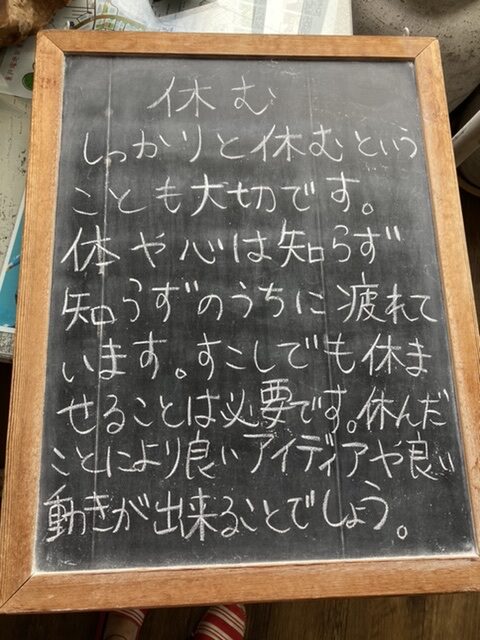 休む
しっかりと休むという
ことも大切です。
体や心は知らず
知らずのうちに疲れて
います。すこしでも休ま
せることは必要です。休んだ
ことにより良いアイディアや良い
動きが出来ることでしょう。